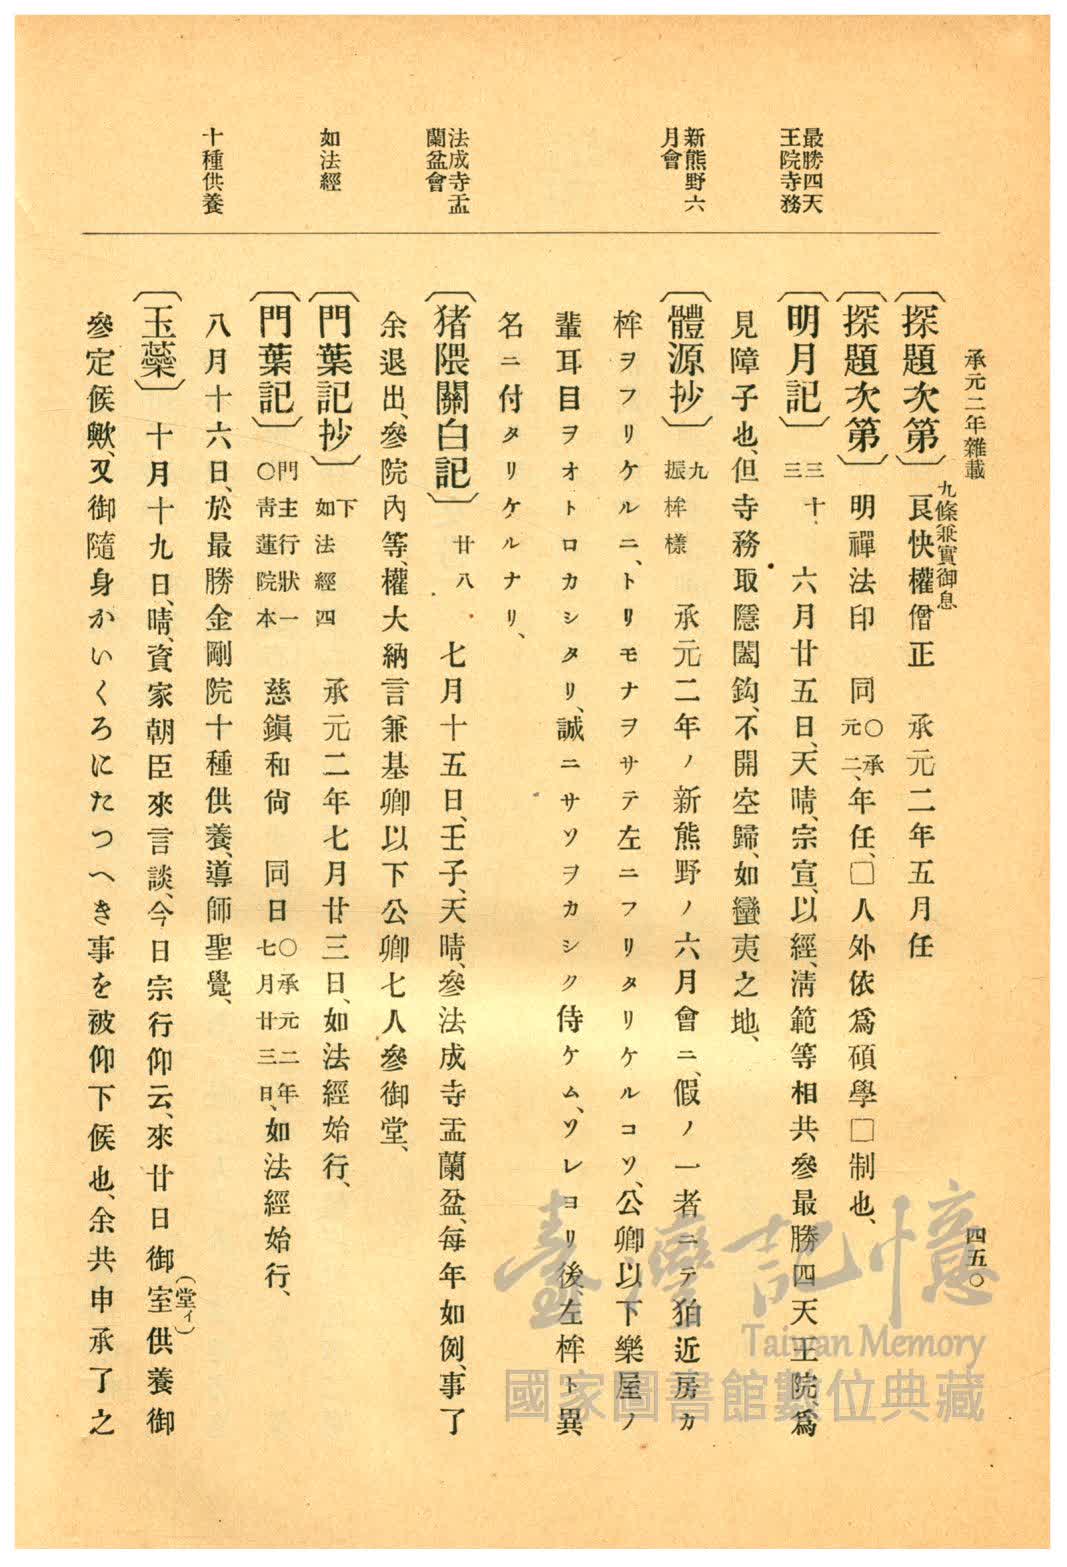 承元二年雜載
四五〇
最勝四天
王院寺務
新熊野六
月會
法成寺盂
蘭盆會
如法經
十種供養
〔探題次第〕良快權僧正　承元二年五月任
九條兼實御息
〔探題次第〕明禪法印　同〇承元二、年任、□人外依爲碩學□制也、
〔明月記〕三十、三　六月廿五日、天晴、宗宣、以經、淸範等相共參最勝四天王院、爲
見障子也、但寺務取隱闔鈎、不開空歸、如蠻夷之地、
〔體源抄〕九振桙樣　承元二年ノ新熊野ノ六月會ニ、假ノ一者ニテ狛近房カ
桙ヲフリケルニ、トリモナヲサテ左ニフリタリケルコソ、公卿以下樂屋ノ
輩耳目ヲオトロカシタリ、誠ニサソヲカシク侍ケム、ソレヨリ後、左桙ト異
名ニ付タリケルナリ、
〔猪隈關白記〕廿八　七月十五日、壬子、天晴、參法成寺盂蘭盆、每年如例、事了
余退出、參院內等、權大納言兼基卿以下公卿七人參御堂、
〔門葉記抄〕下如法經四　承元二年七月廿三日、如法經始行、
〔門葉記〕門主行狀一〇靑蓮院本　慈鎭和尙　同日〇承元二年七月廿三日、如法經始行、
八月十六日、於最勝金剛院十種供養、導師聖覺、
〔玉蘂〕十月十九日、晴、資家朝臣來言談、今日宗行仰云、來廿日御室供養御
（堂イ）
參定候歟、又御隨身かいくろにたつへき事を被仰下候也、余共申承了之
臺灣記憶
Taiwan Memory
國家圖書館數位典藏